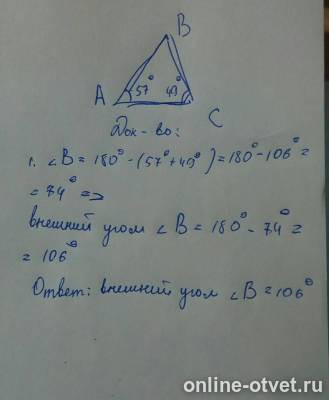 B
57° 49°
A
C
Док-во:
1. ∠B = 180° - (57° + 49°) = 180° - 106° =
= 74° =>
внешний угол ∠B = 180° - 74° =
= 106°
Ответ: внешний угол ∠B = 106°
online-otvet.ru